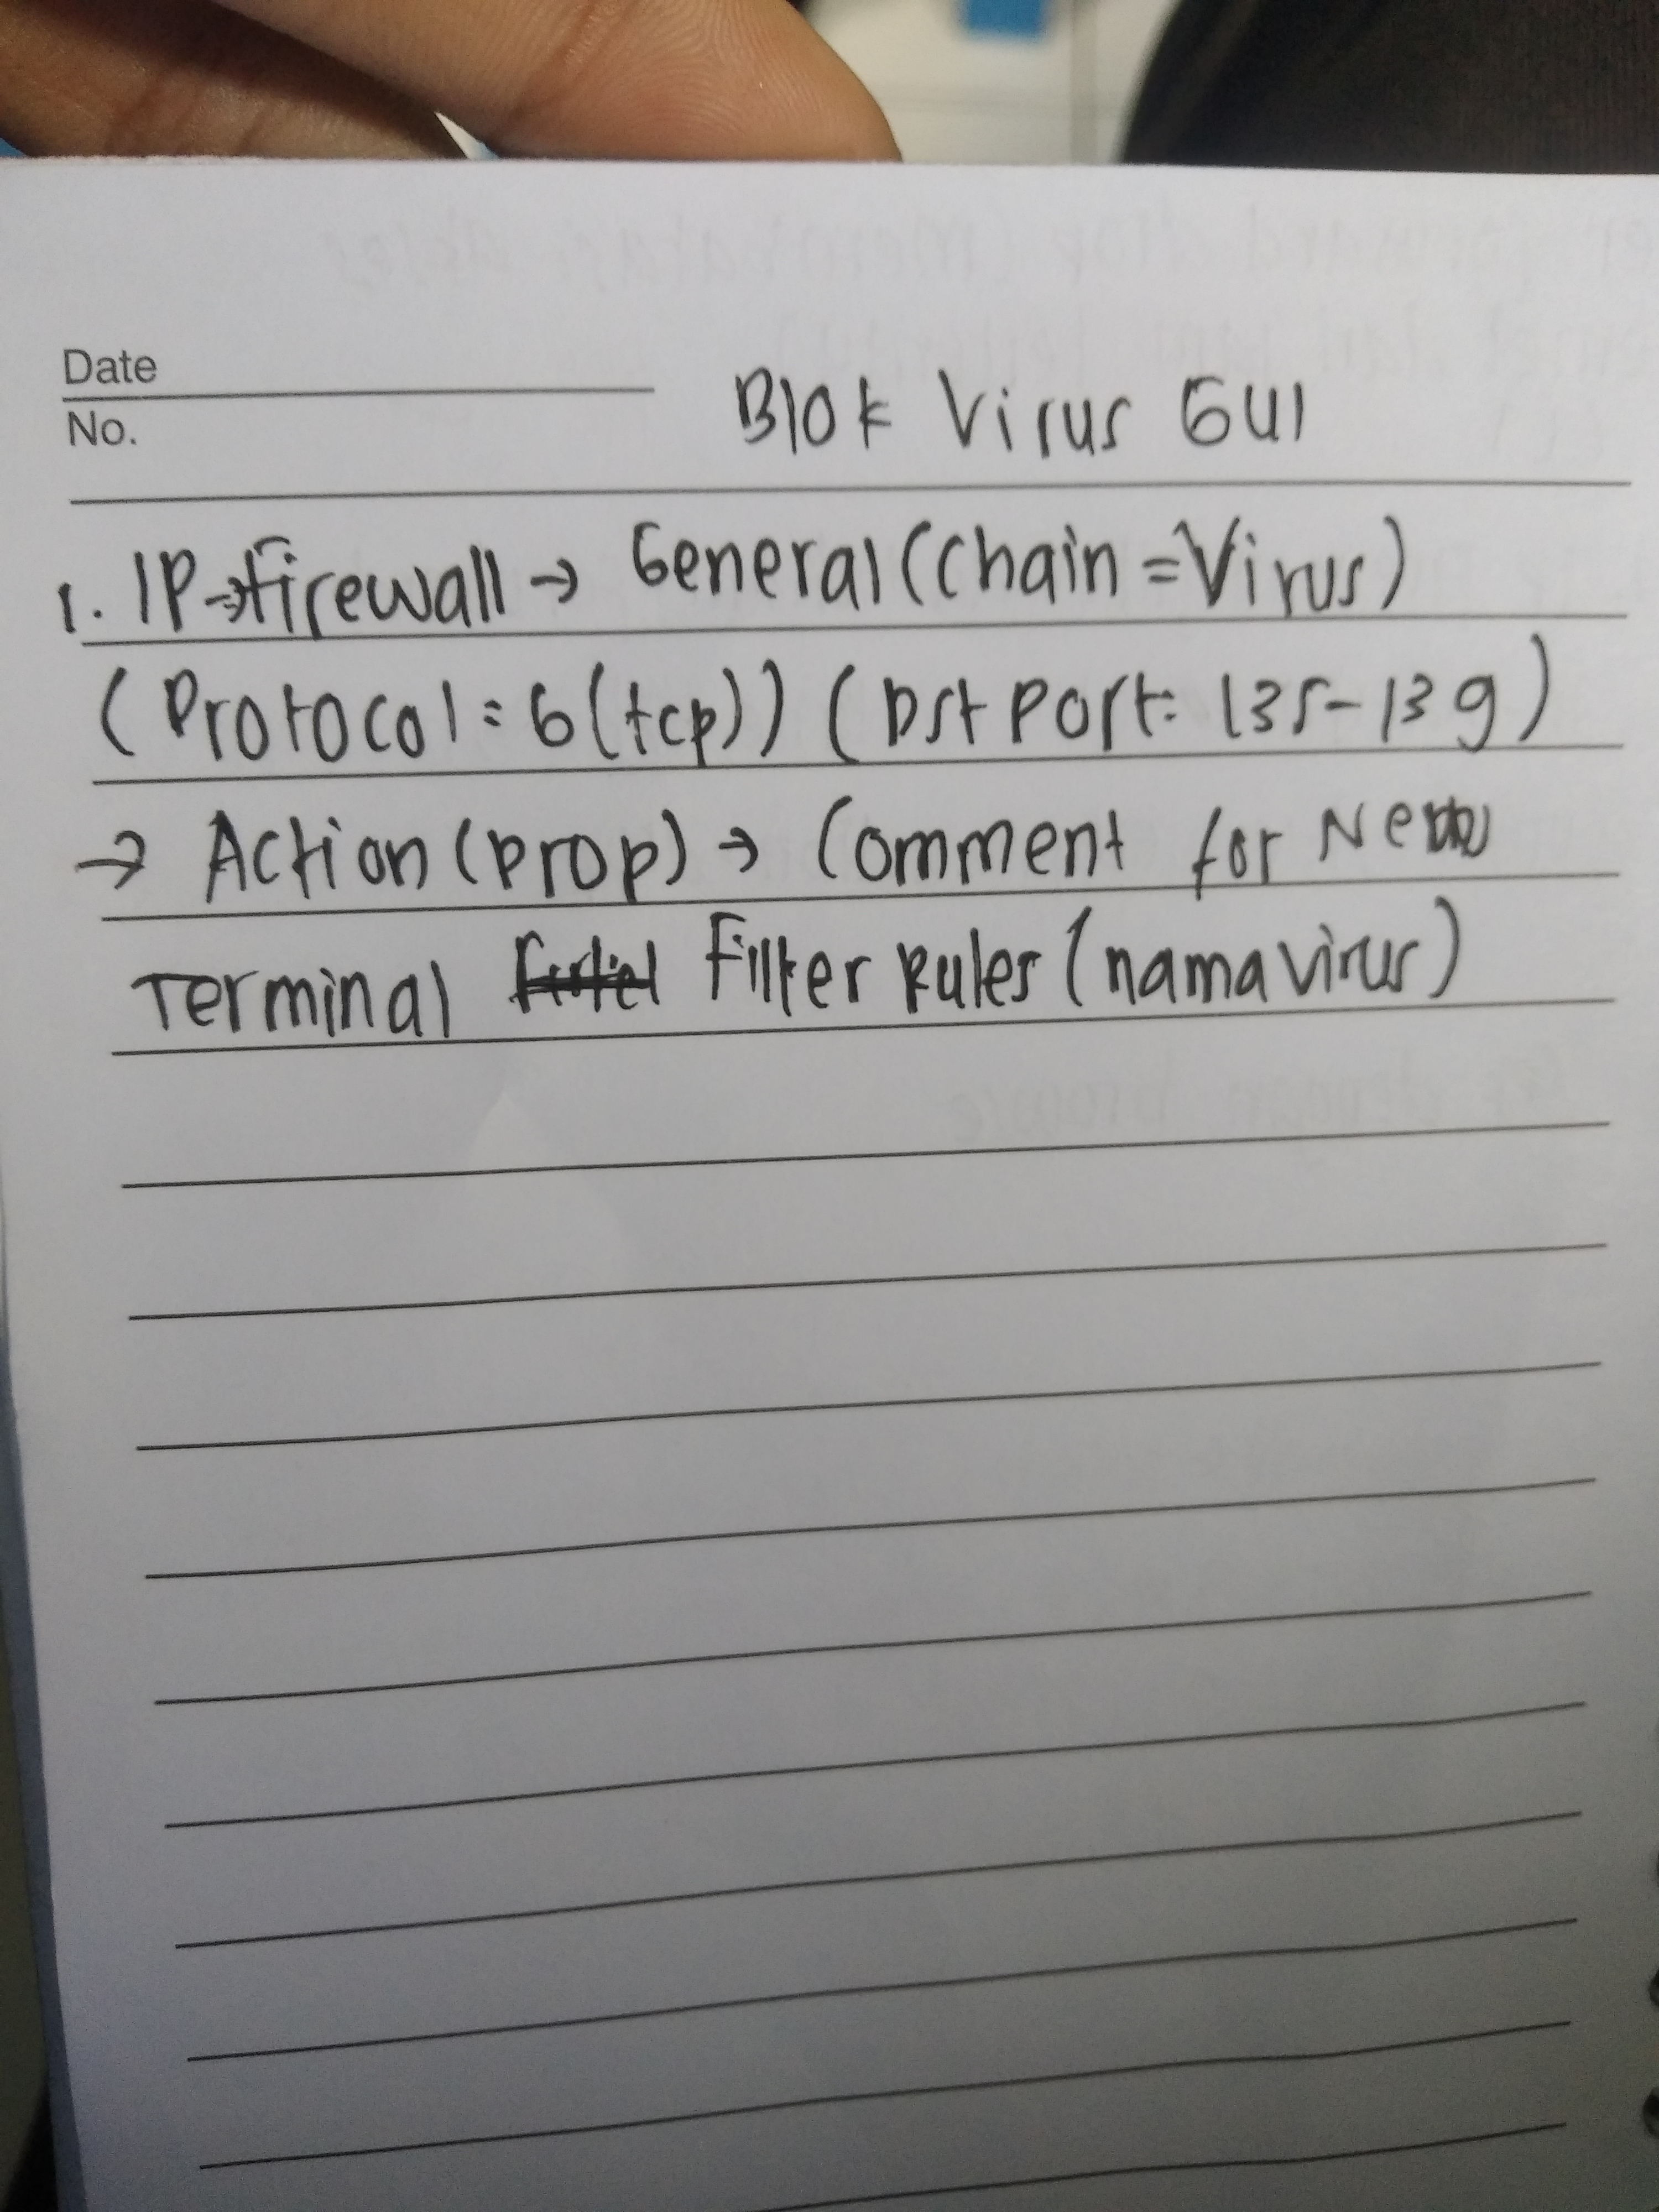 Date
No.
Blok Virus GUI
1. IP→firewall → General (Chain = Virus)
(Protocol = 6 (tcp)) (Dst Port: 135-139)
→ Action (Drop) → Comment for New
Terminal Filter Rules (nama virus)